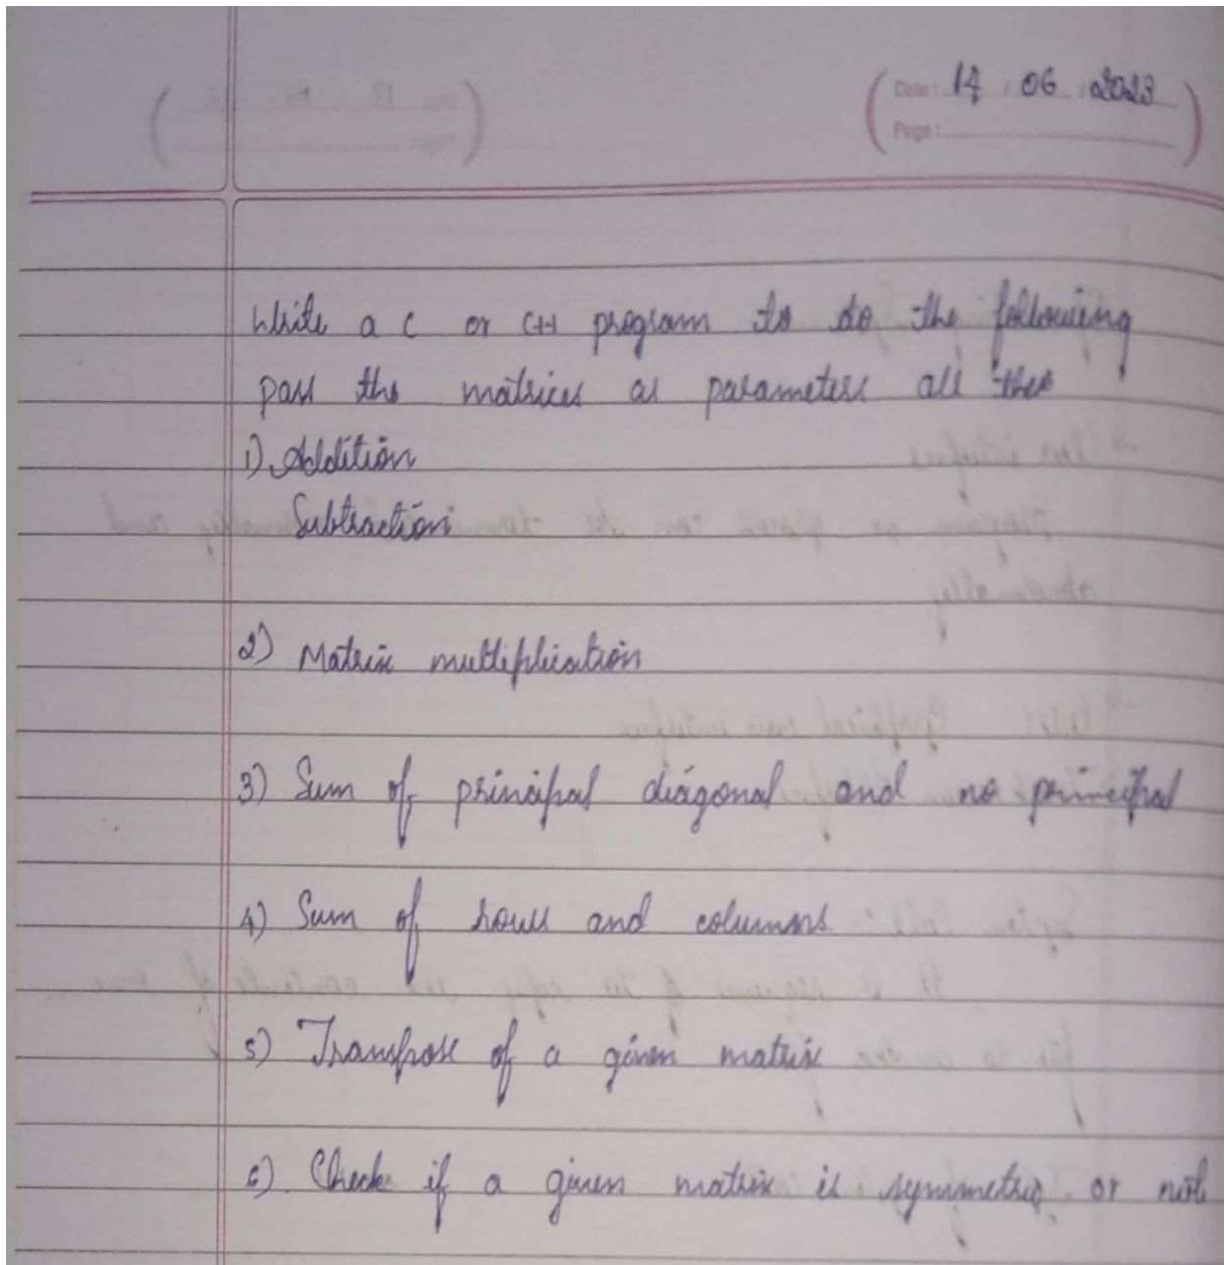 Date: 14 / 06 / 2023
Page:
Write a C or C++ program to do the following
pass the matrices as parameters all
1) Addition
Subtraction
2) Matrix multiplication
3) Sum of principal diagonal and no principal
4) Sum of rows and columns
5) Transpose of a given matrix
6) Check if a given matrix is symmetric or not